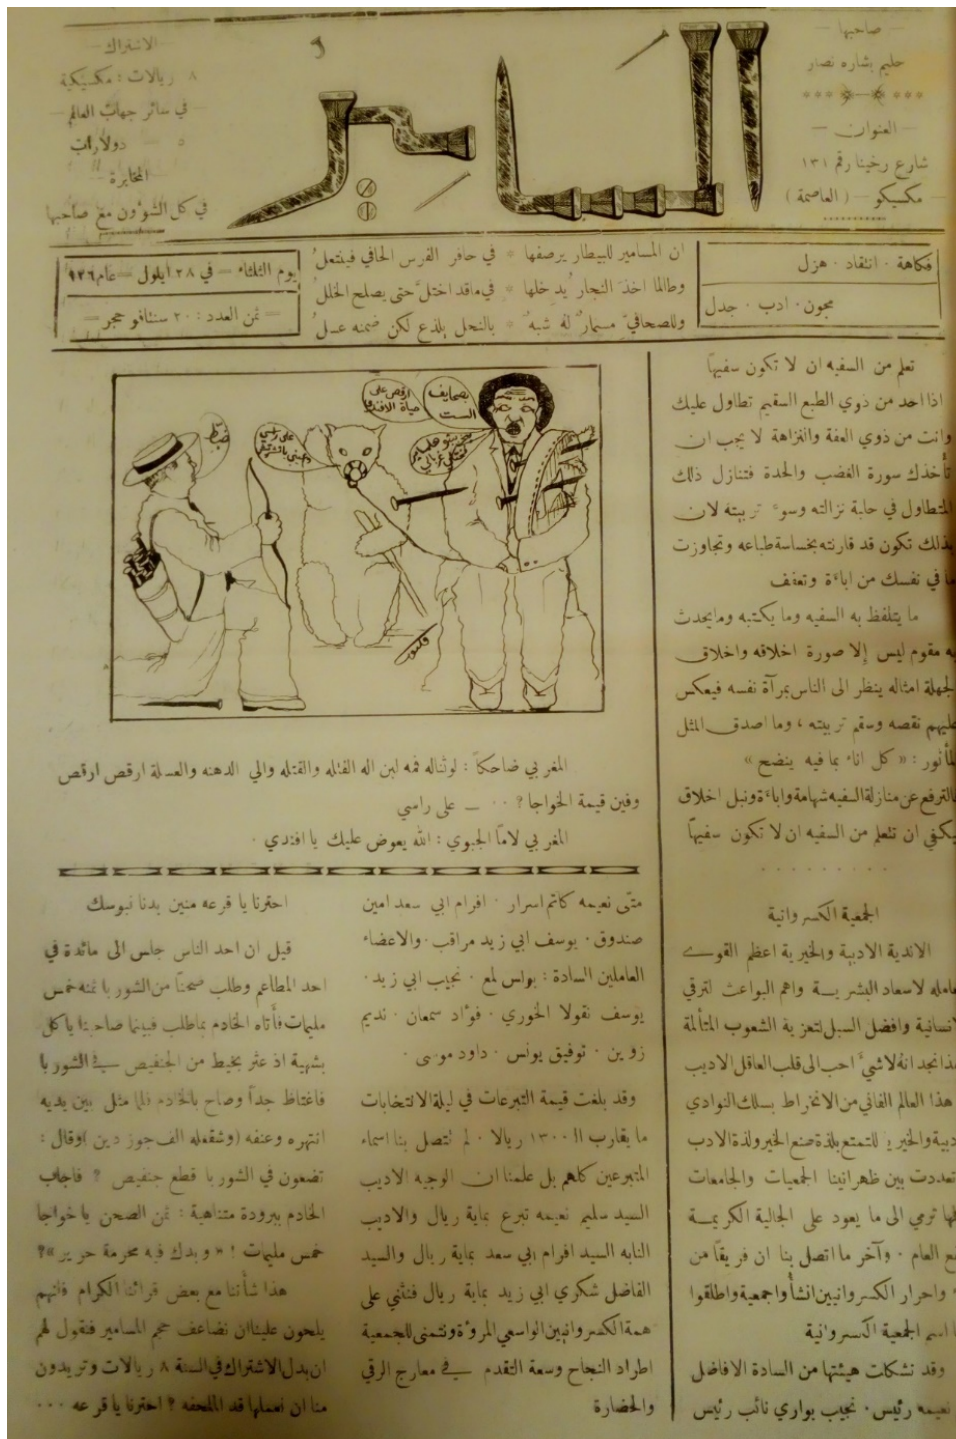 المسامير
صاحبها
حليم بشاره نصار
العنوان
شارع رخينا رقم ١٣١
مكسيكو - ( العاصمة )
الاشتراك
٨ ريالات : مكسيكية
في سائر جهات العالم
٥ - دولارات
المخابرة
في كل الشؤون مع صاحبها
فكاهة . انتقاد . هزل
مجون . ادب . جدل
ان المسامير للبيطار يرصفها * في حافر الفرس الحافي فينتعل
وطالما اخذ النجار يُدخلها * في ما قد اختلّ حتى يصلح الخلل
وللصحافيّ مسمارٌ لهُ شبهٌ * بالنحل يلذع لكن ضمنه عسلُ
يوم الثلثاء - في ٢٨ ايلول - عام ٩٢٦
ثمن العدد : ٢٠ سنتافو حجر
تعلم من السفيه ان لا تكون سفيهاً
اذا احد من ذوي الطبع السقيم تطاول عليك
وانت من ذوي العفة والنزاهة لا يجب ان
تأخذك سورة الغضب والحدة فتنازل ذلك
المتطاول في حابة نزالته وسوء تربيته لان
بذلك تكون قد قارنته بخساسة طباعه وتجاوزت
ما في نفسك من اباءة وتعفف
ما يتلفظ به السفيه وما يكتبه وما يحدث
به مقوم ليس إلا صورة اخلاقه واخلاق
الجهلة امثاله ينظر الى الناس بمرآة نفسه فيعكس
عليهم نقصه وسقم تربيته ، وما اصدق المثل
المأثور : « كل اناء بما فيه ينضح »
بالترفع عن منازلة السفيه شهامة واباءة ونبل اخلاق
يكفي ان تتعلم من السفيه ان لا تكون سفيهاً
الجمعية الكسروانية
الاندية الادبية والخيرية اعظم القوى
عامله لاسعاد البشرية واهم البواعث لترقي
الانسانية وافضل السبل لتعزية الشعوب المتألمة
لذا نجد انهُ لا شيءَ احب الى قلب العاقل الاديب
هذا العالم الفاني من الانخراط بسلك النوادي
الادبية والخيرية للتمتع بلذة صنع الخير ولذة الادب
تعددت بين ظهرانينا الجمعيات والجامعات
كلها ترمي الى ما يعود على الجالية الكريمة
بالنفع العام . وآخر ما اتصل بنا ان فريقاً من
واحرار الكسروانيين انشأوا جمعية واطلقوا
اسم الجمعية الكسروانية
وقد تشكلت هيئتها من السادة الافاضل
نعيمه رئيس . نجيب بواري نائب رئيس
بصحايف
الست
ارقص على
حياة الافندي
على راسي
قلبور
المغربي ضاحكاً : لو تناله فمه لبن اله القتله والقتله والي الدهنه والعسلة ارقص ارقص
وفين قيمة الخواجا ? ٠٠ - على راسي
المغربي لاماً الجبوي : الله يعوض عليك يا افندي .
متى نعيمه كاتم اسرار . افرام ابي سعد امين
صندوق . يوسف ابي زيد مراقب . والاعضاء
العاملين السادة : بولس لمع . نجيب ابي زيد .
يوسف نقولا الخوري . فؤاد سمعان . نديم
زوين . توفيق يونس . داود موسى .
وقد بلغت قيمة التبرعات في ليلة الانتخابات
ما يقارب الـ ١٣٠٠ ريالا . لم تتصل بنا اسماء
المتبرعين كلهم بل علمنا ان الوجيه الاديب
السيد سليم نعيمه تبرع بماية ريال والاديب
النابه السيد افرام ابي سعد بماية ريال والسيد
الفاضل شكري ابي زيد بماية ريال فنثني على
همة الكسروانيين الواسعي المروءة ونتمنى للجمعية
اطراد النجاح وسعة التقدم في معارج الرقي
والحضارة
احترنا يا قرعه منين بدنا نبوسك
قيل ان احد الناس جلس الى مائدة في
احد المطاعم وطلب صحناً من الشوربا ثمنه خمس
مليمات فأتاه الخادم بما طلب فبينما صاحبنا يأكل
بشهية اذ عثر بخيط من الجنفيص في الشوربا
فاغتاظ جداً وصاح بالخادم فلما مثل بين يديه
انتهره وعنفه (وشقعله الف جوز دين )وقال :
تضعون في الشوربا قطع جنفيص ? فاجاب
الخادم ببرودة متناهية : ثمن الصحن يا خواجا
خمس مليمات ! « وبدك فيه محرمة حرير »?
هذا شأننا مع بعض قرائنا الكرام فانهم
يلحون علينا ان نضاعف حجم المسامير فنقول لهم
ان بدل الاشتراك في السنة ٨ ريالات وتريدون
منا ان نعملها قد الملحفه ? احترنا يا قرعه ٠٠٠